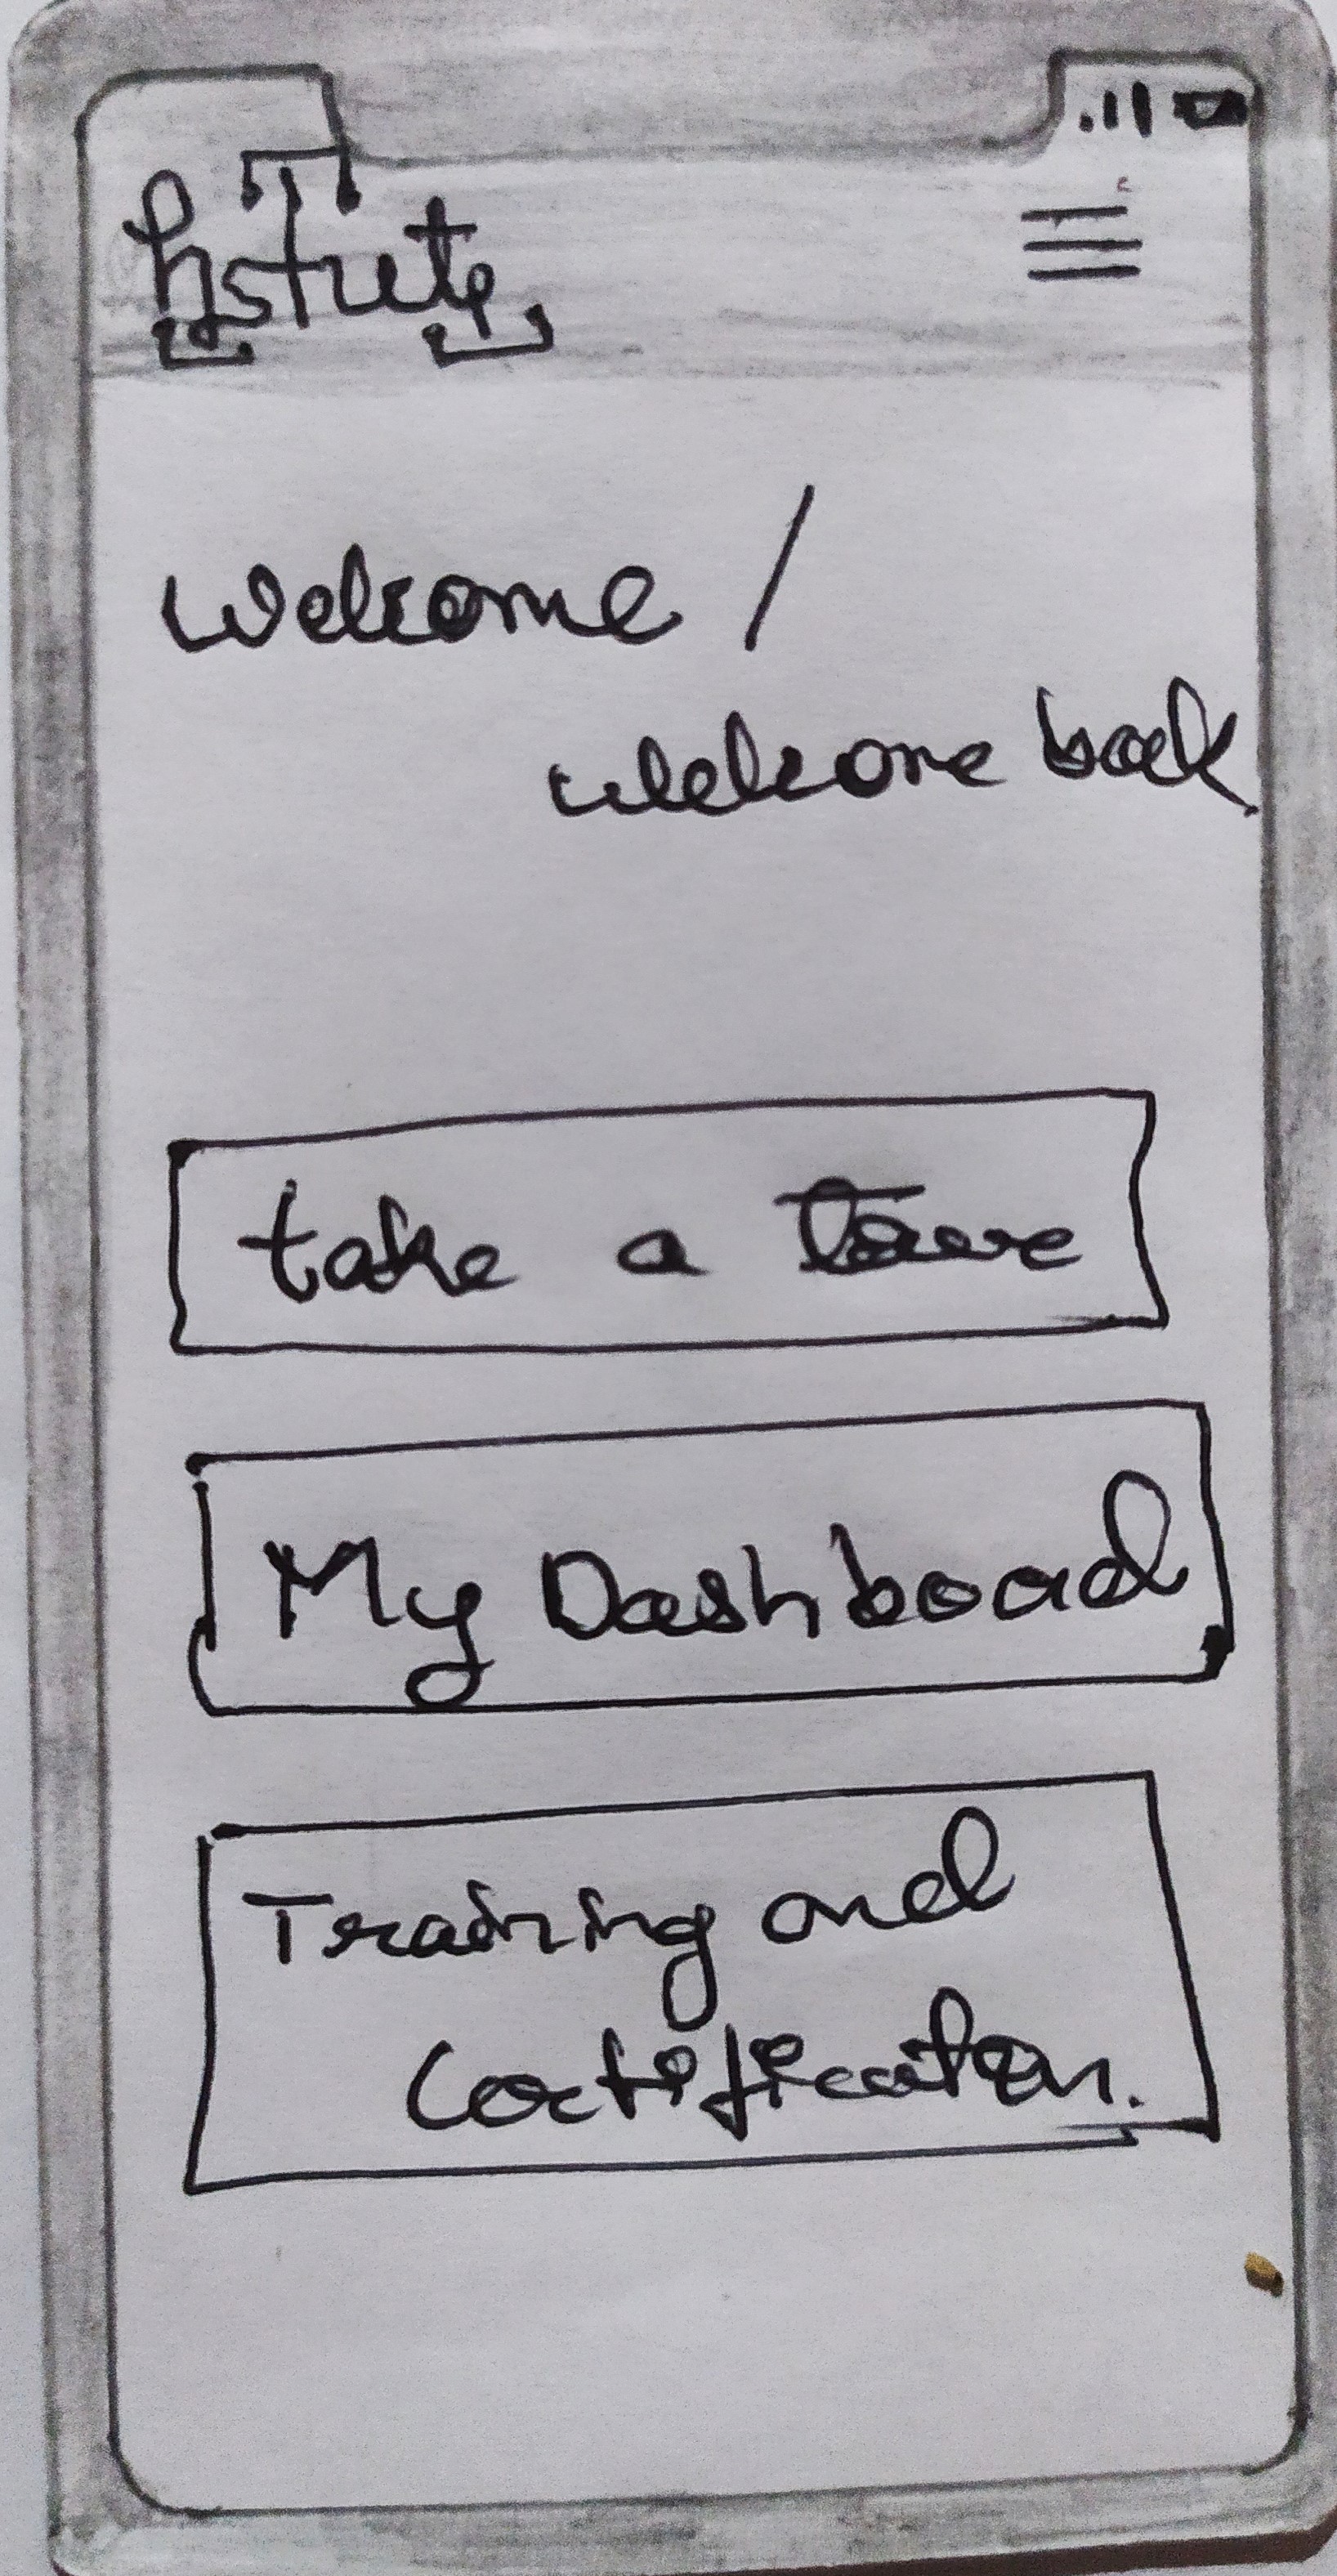 Welcome /
welcome back
take a
My Dashboad
Training and
Certification.